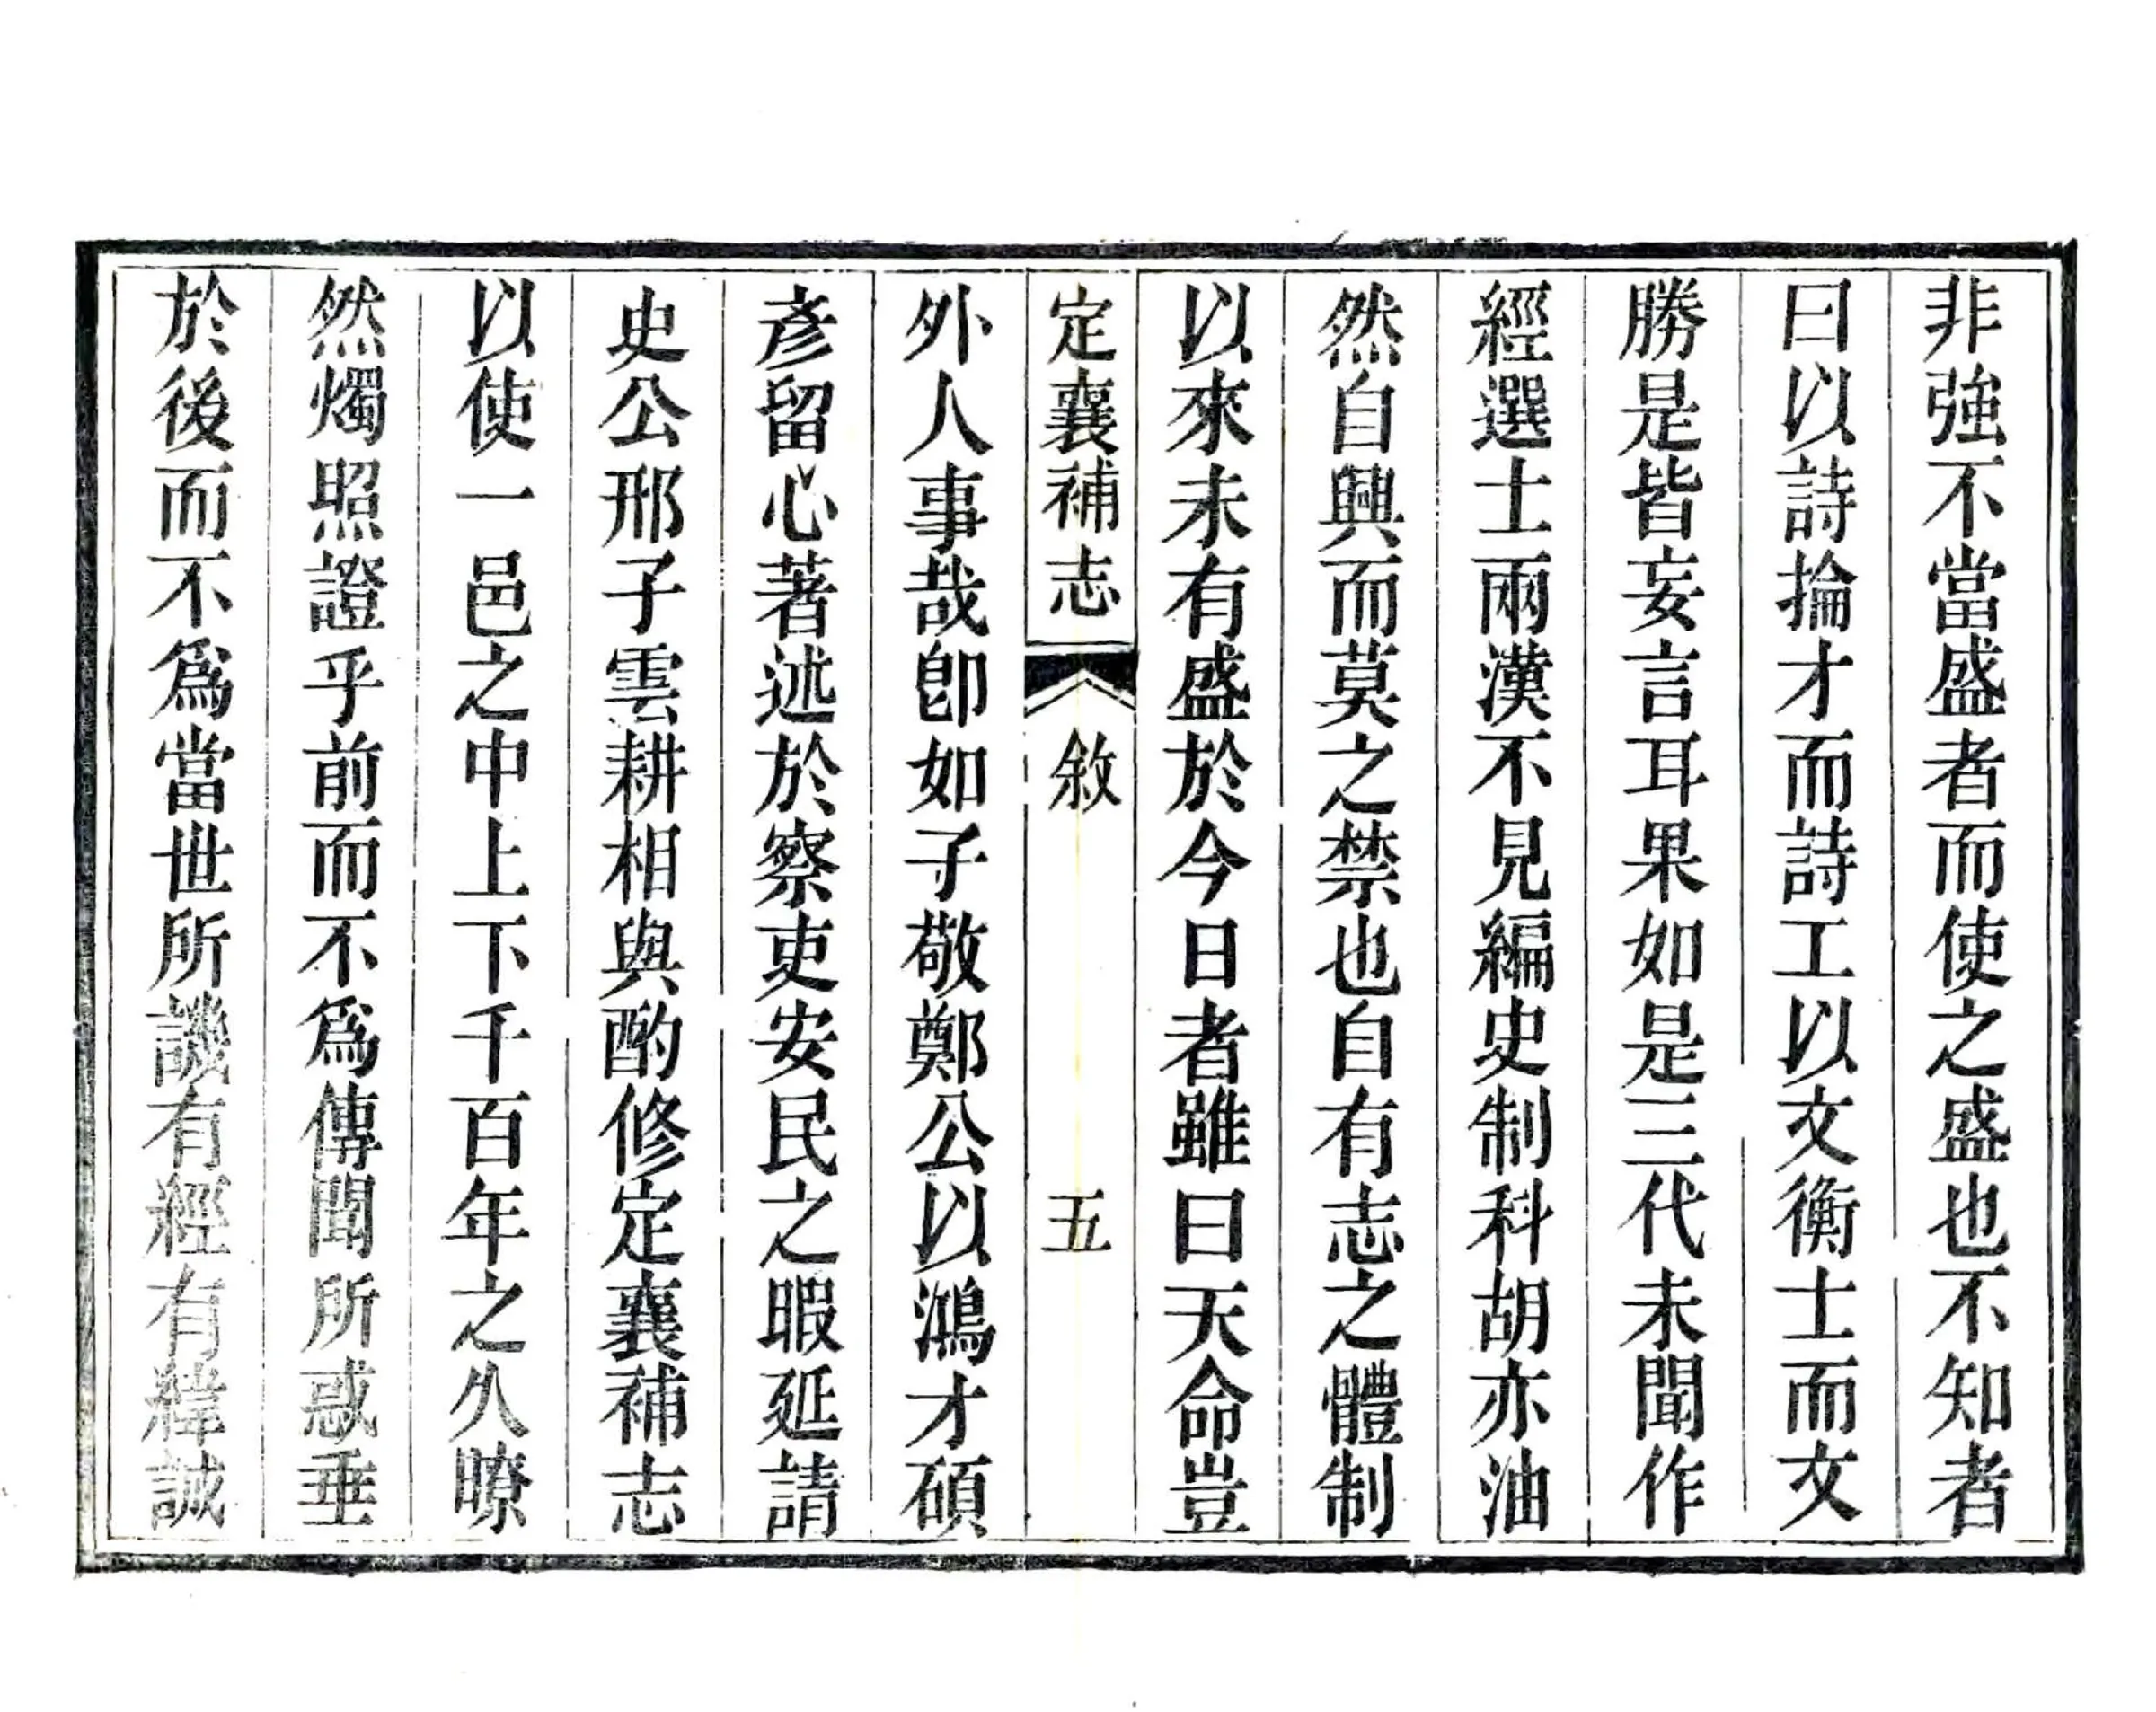 非強不當盛者而使之盛也不知者
曰以詩掄才而詩工以文衡士而文
勝是皆妄言耳果如是三代未聞作
經選士兩漢不見編史制科胡亦油
然自興而莫之禁也自有志之體制
以來未有盛於今日者雖曰天命豈
定襄補志
敘
五
外人事哉卽如子敬鄭公以鴻才碩
彥留心著述於察吏安民之暇延請
史公邢子雲耕相與酌修定襄補志
以使一邑之中上下千百年之久暸
然燭照證乎前而不爲傳聞所惑垂
於後而不爲當世所譏有經有緯誠